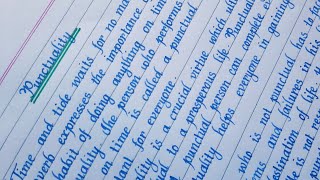 Punctuality
Time and tide waits for no ma
verb expresses the importance
habit of doing anything on tim
uality. The person who performs
on time is called a punctual
tant for everyone.
ality is a crucial virtue which
ial to a prosperous life. Punctual
punctual person can complete
tuality helps everyone in gaining
who is not punctual has to
ms and failures in his
destination of life